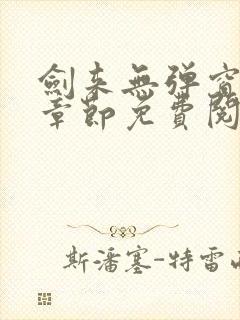 劍来無弹窗
章節免費閱
斯潘塞-特雷西